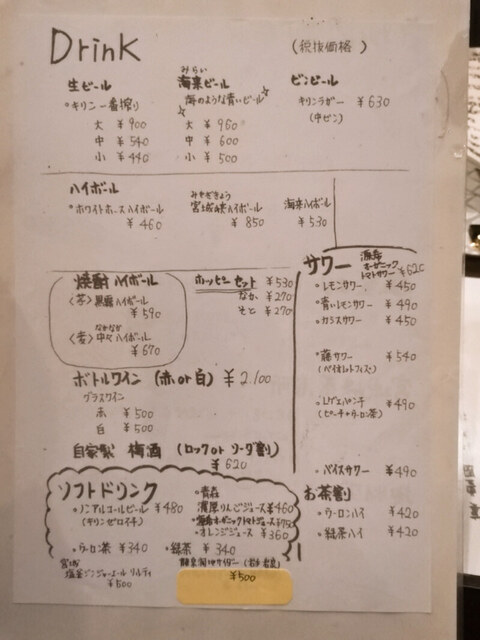 Drink
(税抜価格)
生ビール
・キリン一番搾り
大 ¥900
中 ¥540
小 ¥440
みらい
海来ビール
海のような青いビール
大 ¥960
中 ¥600
小 ¥500
ビンビール
キリンラガー ¥630
(中ビン)
ハイボール
・ホワイトホースハイボール
¥460
みやぎきょう
宮城峡ハイボール
¥850
海来ハイボール
¥530
焼酎ハイボール
〈芋〉黒霧ハイボール
¥590
なかなか
〈麦〉中々ハイボール
¥670
ホッピーセット ¥530
なか ¥270
そと ¥270
ボトルワイン (赤or白) ¥2.100
グラスワイン
赤 ¥500
白 ¥500
自家製 梅酒 (ロックorソーダ割)
¥620
サワー
オーガニック
トマトサワー ¥620
・レモンサワー ¥450
・青いレモンサワー ¥490
・カシスサワー ¥450
・藤サワー ¥540
(バイオレットフィズ)
・レゲエパンチ ¥490
(ピーチ+ウーロン茶)
・バイスサワー ¥490
お茶割
・ウーロンハイ ¥420
・緑茶ハイ ¥420
ソフトドリンク
・ノンアルコールビール ¥480
(キリンゼロイチ)
・青森
濃厚りんごジュース ¥460
オーガニックトマトジュース
・オレンジジュース ¥360
・ウーロン茶 ¥340
・緑茶 ¥340
宮城
塩釜ジンジャーエール
¥500
サイダー
¥500